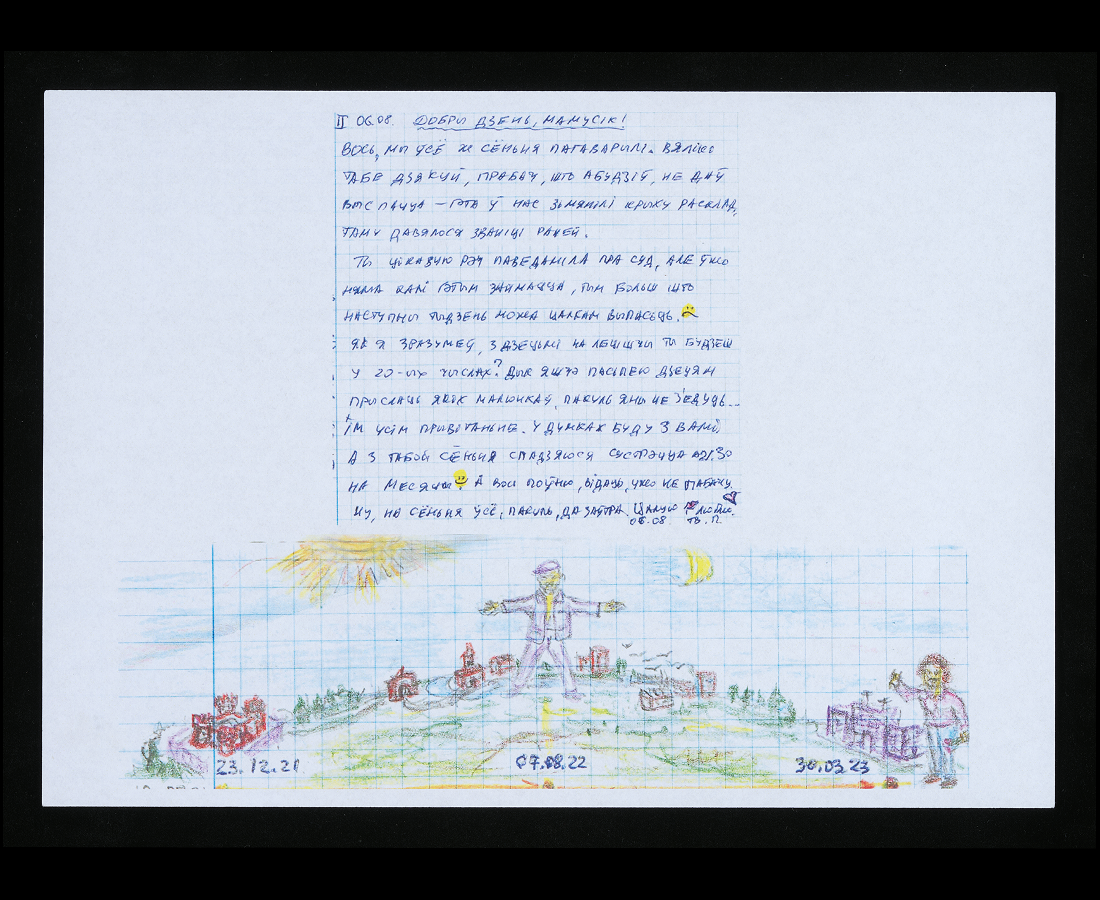 II 06.08. ДОБРЫ ДЗЕНЬ, МАМУСІК!
ВОСЬ, МЫ ЎСЁ Ж СЁНЬНЯ ПАГАВАРЫЛІ. ВЯЛІКІ
ТАБЕ ДЗЯКУЙ, ПРАБАЧ, ШТО АБУДЗІЎ, НЕ ДАЎ
ВЫСПАЦЦА – ГЭТА Ў НАС ЗЬМЯНІЛІ КРЫХУ РАСКЛАД,
ТАМУ ДАВЯЛОСЯ ЗВАНІЦЬ РАНЕЙ.
ТЫ ЦІКАВУЮ РЭЧ ПАВЕДАМІЛА ПРА СУД, АЛЕ ЎЖО
НЯМА КАЛІ ГЭТЫМ ЗАЙМАЦЦА, ТЫМ БОЛЬШ ШТО
НАСТУПНЫ ТЫДЗЕНЬ МОЖА ЦАЛКАМ ВЫПАСЬЦЬ.
ЯК Я ЗРАЗУМЕЎ, З ДЗЕЦЬМІ НА ЛЕЦІШЧЫ ТЫ БУДЗЕШ
У 20-ЫХ ЧЫСЛАХ? ДЫК ЯШЧЭ ПАСЬПЕЮ ДЗЕЦЯМ
ПРЫСЛАЦЬ МАЛЮНКАЎ, ПАКУЛЬ ЯНЫ НЕ ЗЬЕДУЦЬ...
ІМ УСІМ ПРЫВІТАНЬНЕ. У ДУМКАХ БУДУ З ВАМІ,
А З ТАБОЙ СЁНЬНЯ СПАДЗЯЮСЯ СУСТРЭЦЦА А 21.30
НА МЕСЯЦЫ. А ВОСЬ ПОЎНЮ, ВІДАЦЬ, УЖО НЕ ПАБАЧУ.
НУ, НА СЁНЬНЯ ЎСЁ, ПАКУЛЬ, ДА ЗАЎТРА. ЦАЛУЮ І ЛЮБЛЮ.
06.08 ТВ. П.
23.12.21 07.08.22 30.03.23